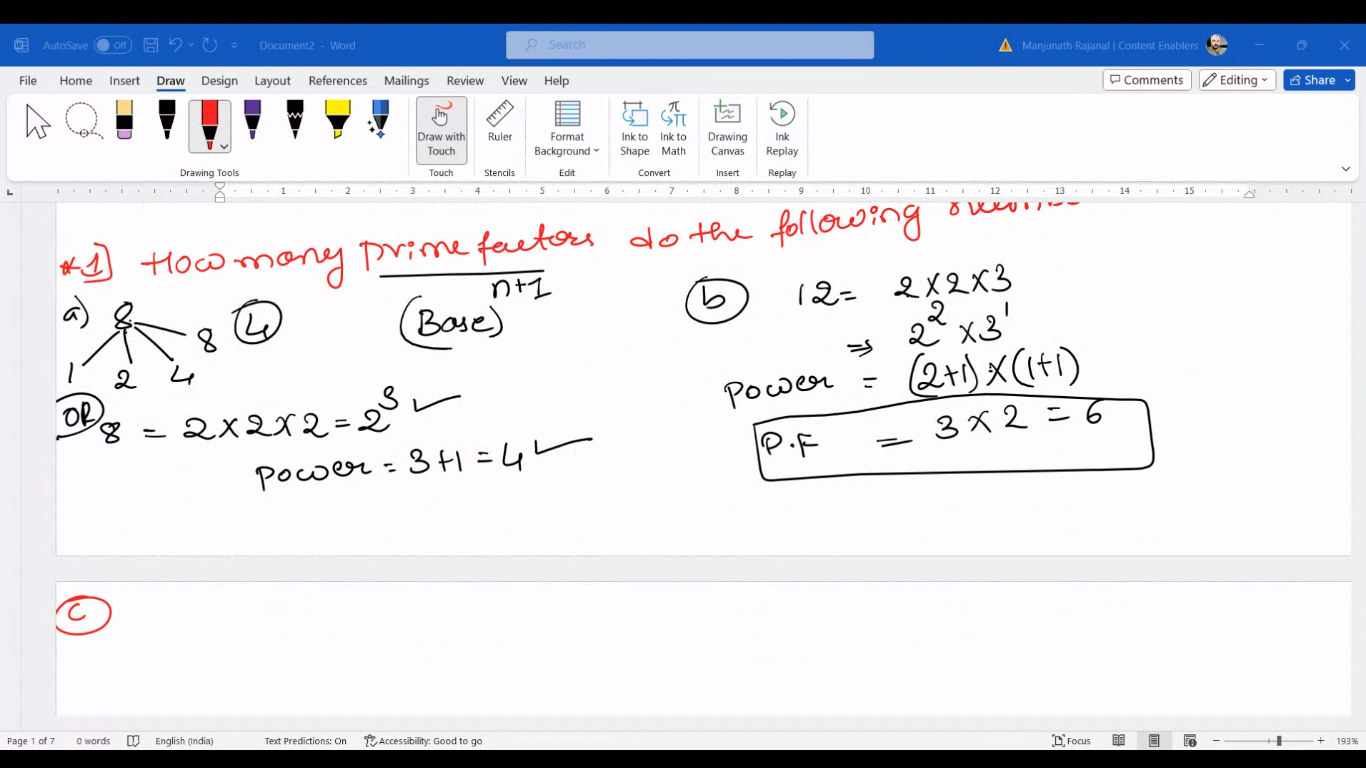 AutoSave Off Document2 - Word Search Manjunath Rajanal | Content Enablers
File Home Insert Draw Design Layout References Mailings Review View Help Comments Editing Share
Draw with Touch Ruler Format Background Ink to Shape Ink to Math Drawing Canvas Ink Replay
Drawing Tools Touch Stencils Edit Convert Insert Replay
1 2 3 4 5 6 7 8 9 10 11 12 13 14 15
*1] How many prime factors do the following
a) 8 4
1 2 4 8
(Base)ⁿ⁺¹
OR 8 = 2×2×2 = 2³ ✓
Power = 3+1 = 4 ✓
b 12 = 2×2×3
⇒ 2² × 3¹
Power = (2+1) × (1+1)
P.F = 3×2 = 6
C
Page 1 of 7 0 words English (India) Text Predictions: On Accessibility: Good to go Focus 193%